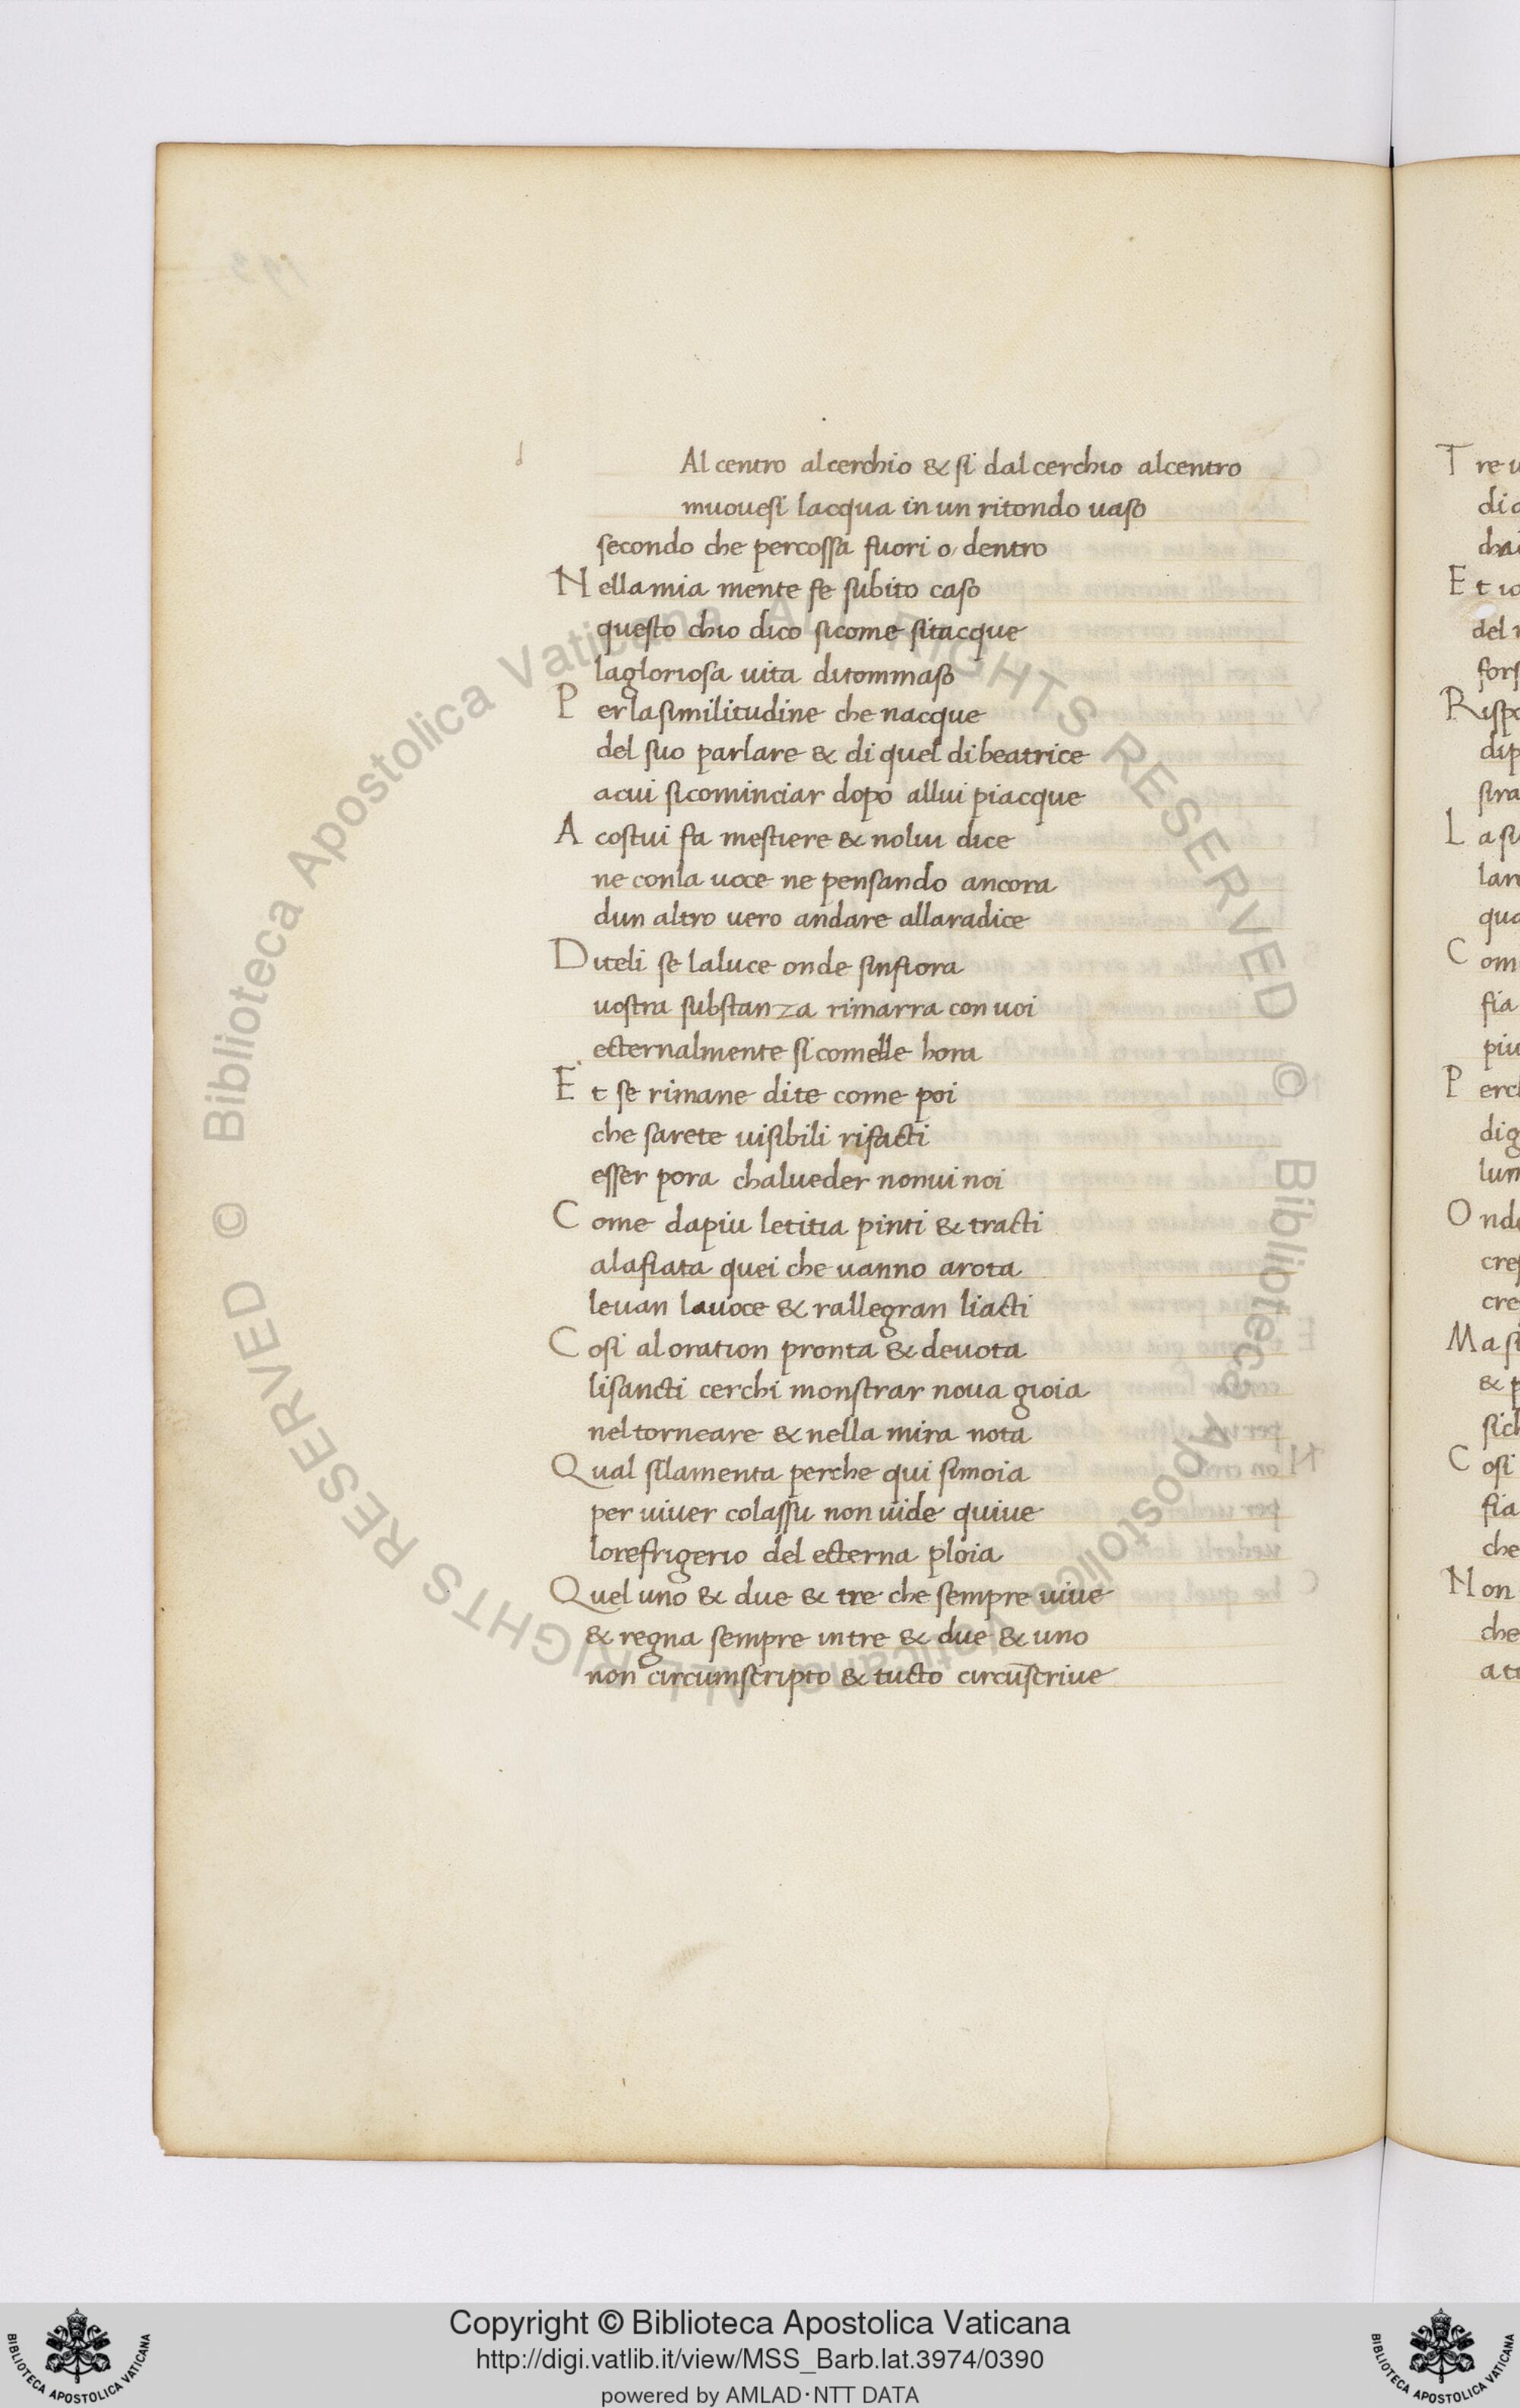 d Al centro alcerchio & si dalcerchio alcentro
muouesi lacqua in un ritondo uaso
secondo che percossa fuori o/ dentro
Nellamia mente fe subito caso
questo chio dico sicome sitacque
lagloriosa uita ditommaso
Perlasimilitudine che nacque
del suo parlare & di quel dibeatrice
acui sicominciar dopo allui piacque
A costui fa mestiere & nolui dice
ne conla uoce ne pensando ancora
dun altro uero andare allaradice
Diteli se laluce onde sinfiora
uostra substanza rimarra con uoi
ecternalmente si comelle hora
Et se rimane dite come poi
che sarete uisibili rifacti
esser pora chalueder nonui noi
Come dapiu letitia pinti & tracti
alafiata quei che uanno arota
leuan lauoce & rallegran liacti
Cosi aloration pronta & deuota
lisancti cerchi monstrar noua gioia
neltorneare & nella mira nota
Qual silamenta perche qui simoia
per uiuer colassu non uide quiue
lorefrigerio del ecterna ploia
Quel uno & due & tre che sempre uiue
& regna sempre intre & due & uno
non circumscripto & tucto circūscriue
Tre u
di
E t io
del
fors
Rispo
dip
stra
La su
lan
qua
C om
fia
piu
P erch
dig
lum
O nde
cres
cre
Ma si
& p
sich
C osi
fia
che
Non
che
a tu
© Biblioteca Apostolica Vaticana ALL RIGHTS RESERVED © Biblioteca Apostolica Vaticana ALL RIGHTS RESERVED
Copyright © Biblioteca Apostolica Vaticana
http://digi.vatlib.it/view/MSS_Barb.lat.3974/0390
powered by AMLAD·NTT DATA
BIBLIOTECA APOSTOLICA VATICANA
BIBLIOTECA APOSTOLICA VATICANA